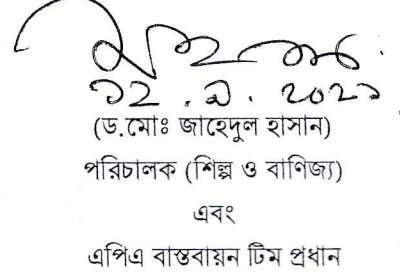 (ড.মোঃ জাহেদুল হাসান)
পরিচালক (শিল্প ও বাণিজ্য)
এবং
এপিএ বাস্তবায়ন টিম প্রধান